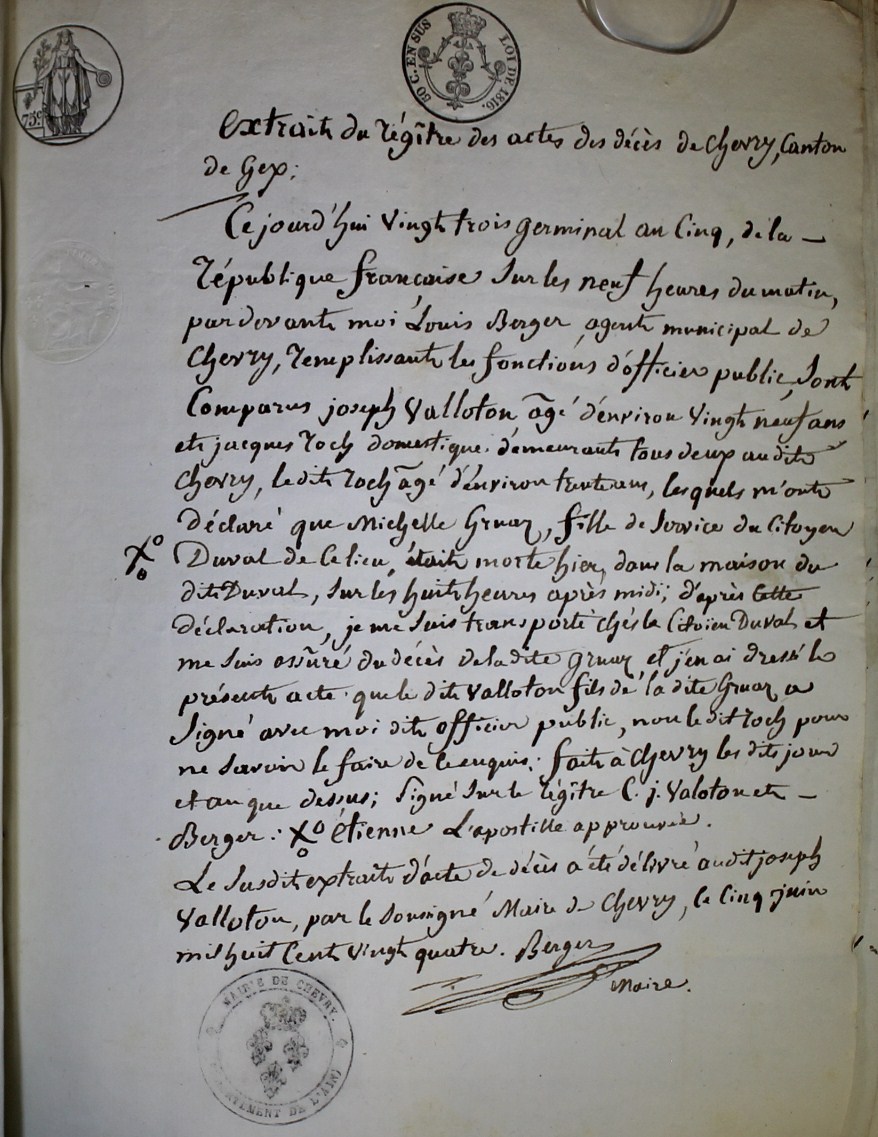 75c.
50 C. EN SUS LOI DE 1816.
Extrait du régître des actes des décès de Chevry, Canton
de Gex;
Ce jourd'hui vingt trois germinal an Cinq, de la —
république française sur les neuf heures du matin,
pardevant moi Louis Berger, agent municipal de
Chevry, remplissant les fonctions d'officier public, sont
Comparus joseph Valloton âgé d'environ vingt neuf ans
et jacques roch domestique demeurant tous deux au dit
Chevry, le dit roch âgé d'environ trente ans, lesquels m'ont
déclaré que Michelle Gruaz, fille de service du Citoyen
Xo Duval de Ce lieu, était morte hier, dans la maison du
dit Duval, sur les huit heures après midi; d'après Cette
déclaration, je me suis transporté chés le Citoïen Duval et
me suis assûré du décès de la dite gruaz et j'en ai dressé le
présent acte que le dit Valloton fils de la dite Gruaz a
signé avec moi dit officier public, non le dit roch pour
ne savoir le faire de Ce enquis; fait à Chevry les dits jour
et an que dessus; signé sur le régître C. j. Valoton et —
Berger: Xo étienne L'apostille approuvée.
Le susdit extrait d'acte de décès a été délivré au dit joseph
Valloton, par le soussigné Maire de Chevry, le Cinq juin
mil huit Cent vingt quatre. Berger
Maire.
MAIRIE DE CHEVRY.
DEPARTEMENT DE L'AIN